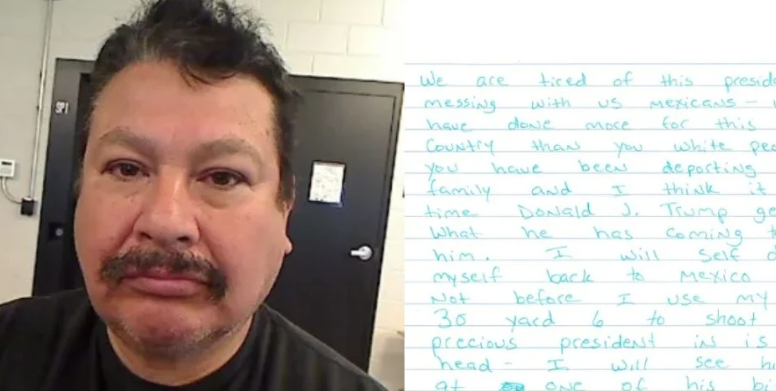 We are tired of this preside
messing with us Mexicans -
have done more for this
Country than you white pe
you have been deporting
family and I think it
time Donald J. Trump ge
What he has coming t
him. I will self d
myself back to Mexico
Not before I use my
30 yard 6 to shoot
precious president in is
head - I will see h
at one of his bi